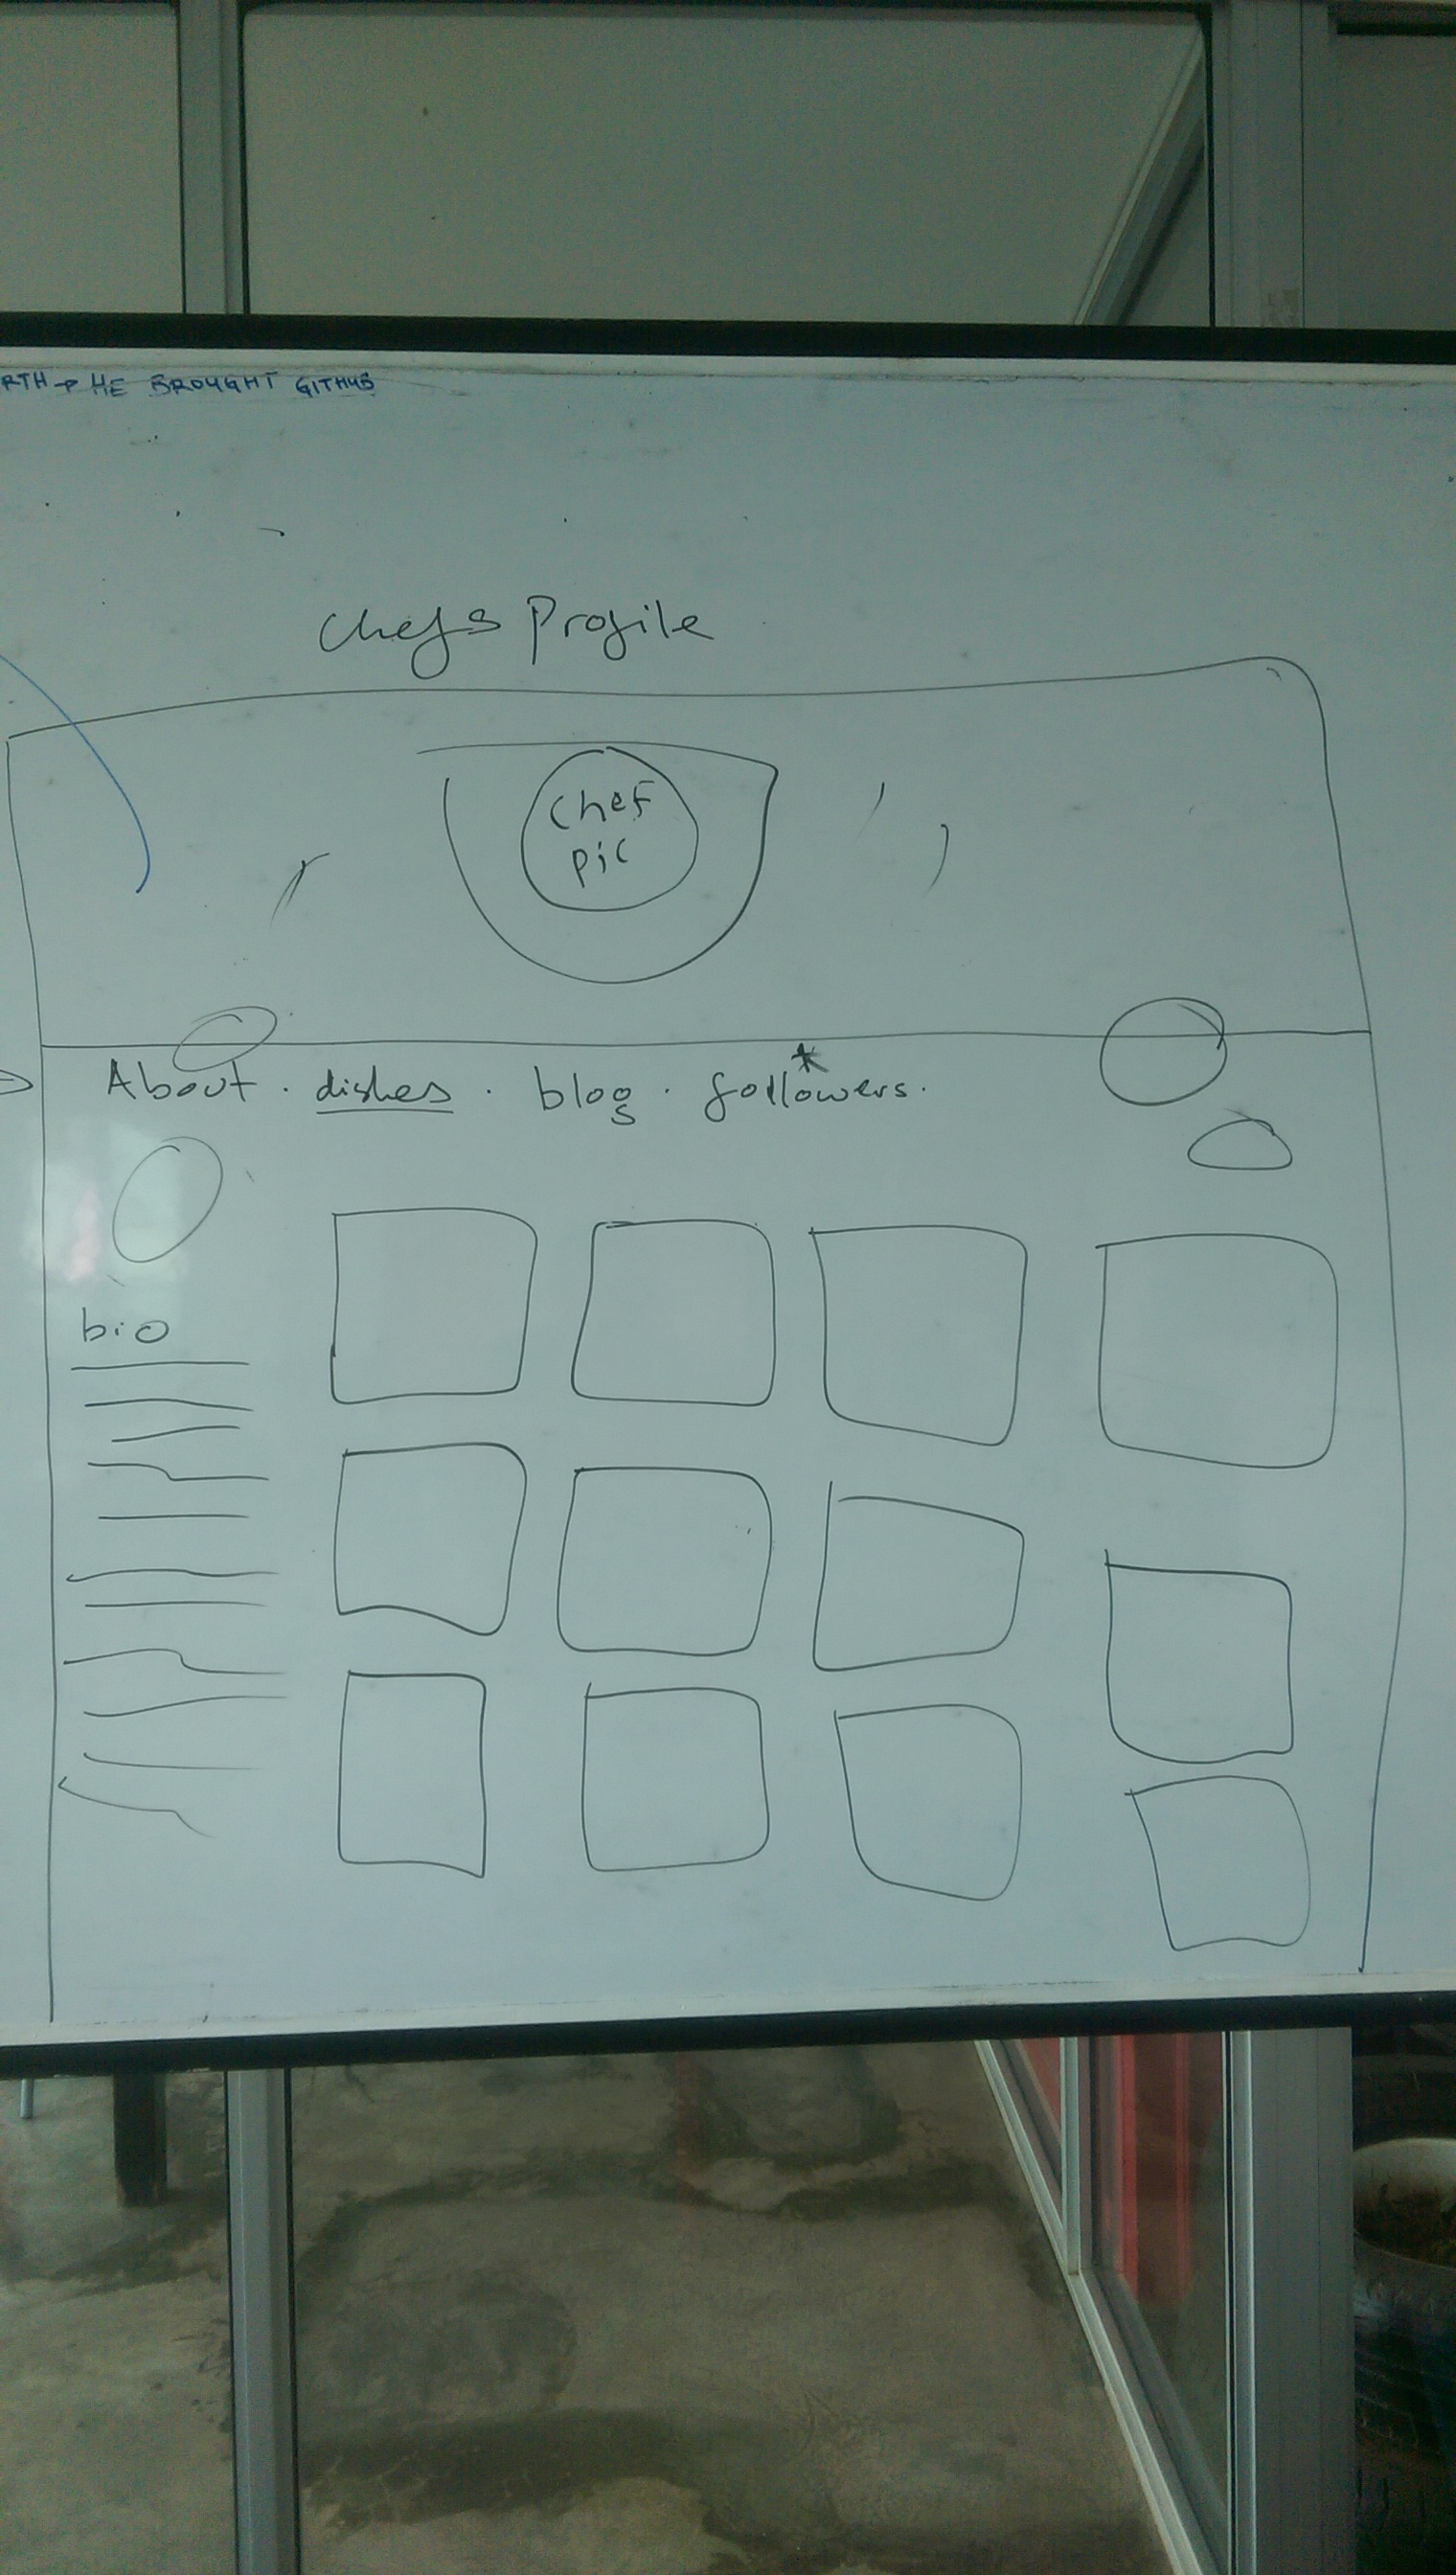 RTH → HE BROUGHT GITHUB
Chefs Profile
Chef
pic
About . dishes . blog . followers. *
bio